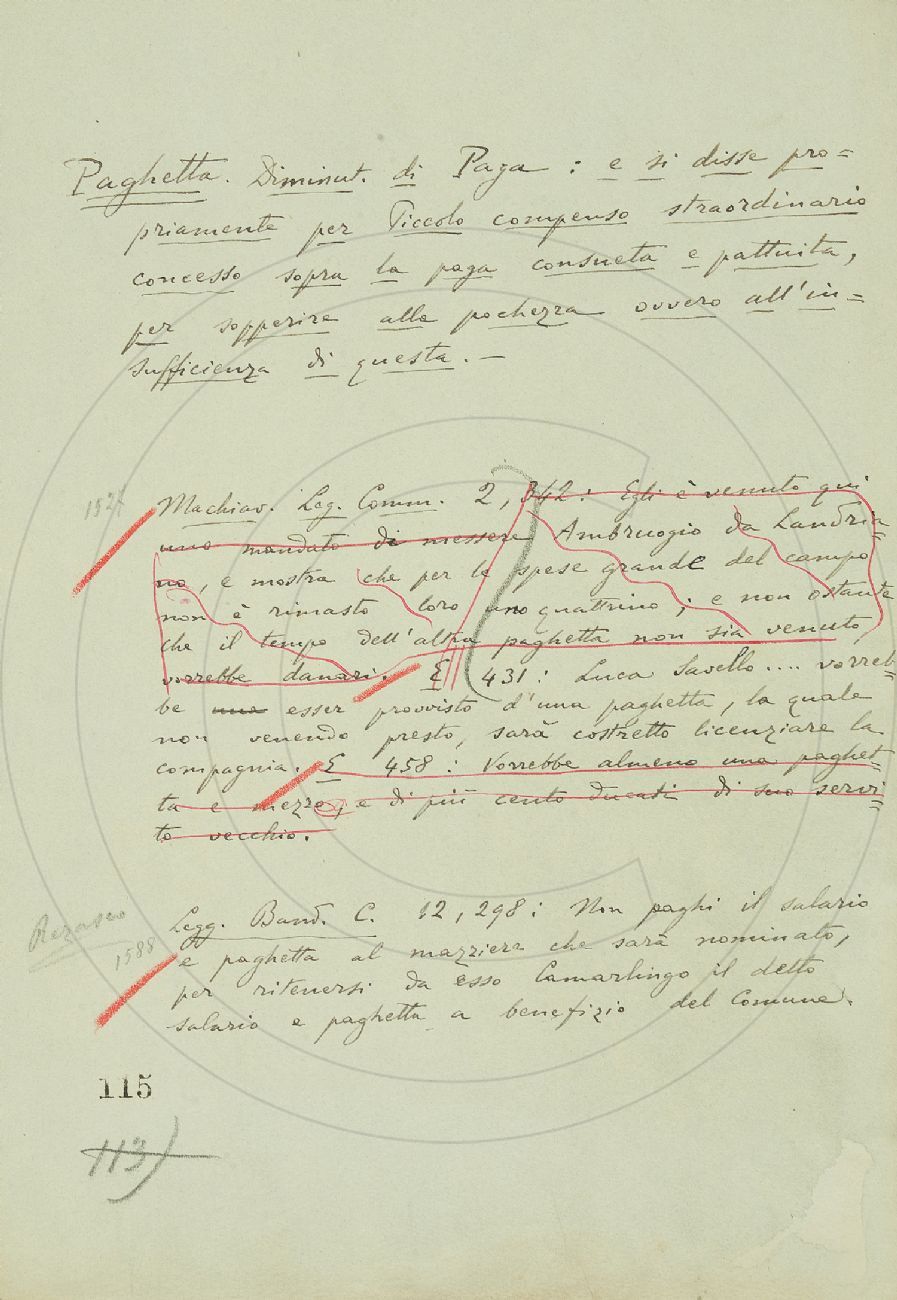 Paghetta. Diminut. di Paga : e si disse pro=
priamente per Piccolo compenso straordinario
concesso sopra la paga consueta e pattuita,
per sopperire alla pochezza ovvero all'in=
sufficienza di questa. —
Machiav. Leg. Comm. 2, 342 : Egli è venuto qui
uno mandato di messere Ambruogio da Landria=
no, e mostra che per le spese grande del campo
non è rimasto loro uno quattrino ; e non ostante
che il tempo dell'altra paghetta non sia venuto,
vorrebbe danari. E 431 : Luca Savello .... vorreb=
be una esser provvisto d'una paghetta, la quale
non venendo presto, sarà costretto licenziare la
compagnia. E 458 : Vorrebbe almeno una paghet=
ta e mezzo, e di più cento ducati di suo servi=
to vecchio.
Rezasco
1588
Legg. Band. C. 12, 298 : Non paghi il salario
e paghetta al mazziere che sarà nominato,
per ritenersi da esso Camarlingo il detto
salario e paghetta a benefizio del Comune.
115
113)